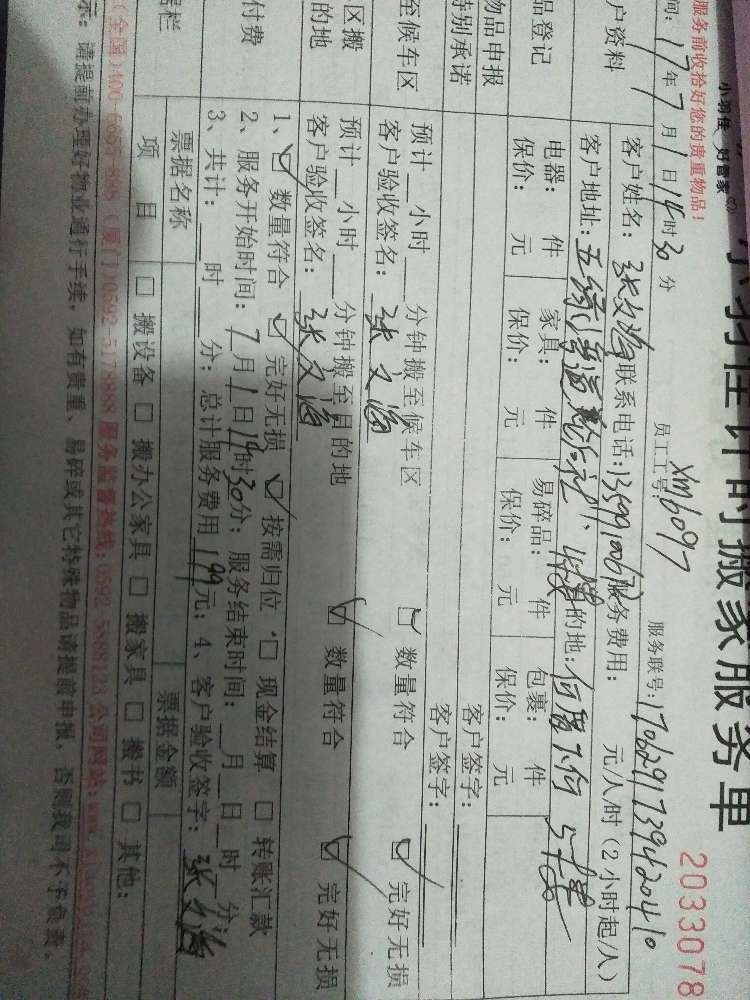 小羽佳 好管家
计时搬家服务单
2033078
服务前收拾好您的贵重物品!
员工工号: Xm6097
服务联号: 1706291739420410
间: 17年7月1日14时30分
户资料
客户姓名: 张文海 联系电话: 服务费用: 元/人/时(2小时起/人)
客户地址: 目的地:
品登记
电器: 件 家具: 件 易碎品: 件 包裹: 件
保价: 元 保价: 元 保价: 元 保价: 元
物品申报
客户签字:
特别承诺
客户签字:
至候车区
预计 小时 分钟搬至候车区 ☑ 数量符合 ☑ 完好无损
客户验收签名: 张文海
区搬
的地
预计 小时 分钟搬至目的地 ☑ 数量符合 ☑ 完好无损
客户验收签名: 张文海
付费
1、☑ 数量符合 ☑ 完好无损 ☑ 按需归位 □ 现金结算 □ 转账汇款
2、服务开始时间: 7月1日14时30分; 服务结束时间: 月 日 时 分;
3、共计: 时 分; 总计服务费用199元; 4、客户验收签字: 张文海
据栏
票据名称 票据金额
项目 □ 搬设备 □ 搬办公家具 □ 搬家具 □ 搬书 □ 其他:
(全国)400-6655-898 (厦门)0592-5178888 服务监督热线: 0592-5888123 公司网站:
示: 请提前办理好物业通行手续, 如有贵重、易碎或其它特殊物品请提前申报, 否则我司不予负责。